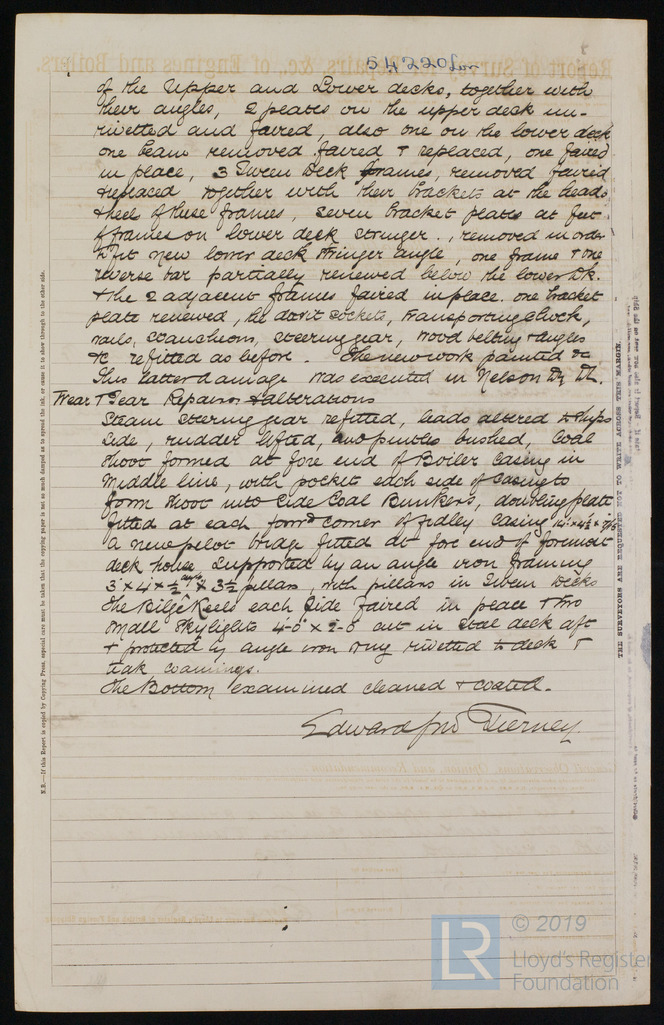 54220 Lon
of the Upper and Lower decks, together with
their angles, 2 plates on the upper deck un-
rivetted and faired, also one on the lower deck
one beam removed faired & replaced, one faired
in place, 3 Tween Deck frames, removed faired
& replaced together with their brackets at the heads
& heel of these frames, seven bracket plates at feet
of frames on lower deck stringer, removed in order
to fit new lower deck stringer angle, one frame & one
reverse bar partially renewed below the lower Dk.
& the 2 adjacent frames faired in place. one bracket
plate renewed, the davit sockets, transporting chock,
rails, stauncheons, steering gear, wood belting & angles
&c refitted as before. The new work painted &c
This latter damage was executed in Nelson Dy Dk.
Wear & Tear Repairs & alterations
Steam steering gear refitted, leads altered to ships
side, rudder lifted, and pintles bushed, Coal
shoot formed at fore end of Boiler Casing in
Middle line, with pocket each side of Casing to
form shoot into side Coal Bunkers, doubling plate
fitted at each forrd corner of fidley Casing
a new pilot bridge fitted at fore end of foremost
deck house, supported by an angle iron framing
3 x 4 x ½ & 3½ pillars, with pillars in Tween Decks
The Bilge Keels each side faired in place & two
small skylights 4-0 x 2-0 cut in steel deck aft
& protected by angle iron ring rivetted to deck &
teak coamings.
The Bottom examined cleaned & coated.
Edward Jno Tierney
N.B.—If this Report is copied by Copying Press, especial care must be taken that the copying paper is not so much damped as to spread the ink, or cause it to show through to the other side.
THE SURVEYORS ARE REQUESTED NOT TO WRITE ACROSS THIS MARGIN
© 2019
LR
Lloyd's Register
Foundation